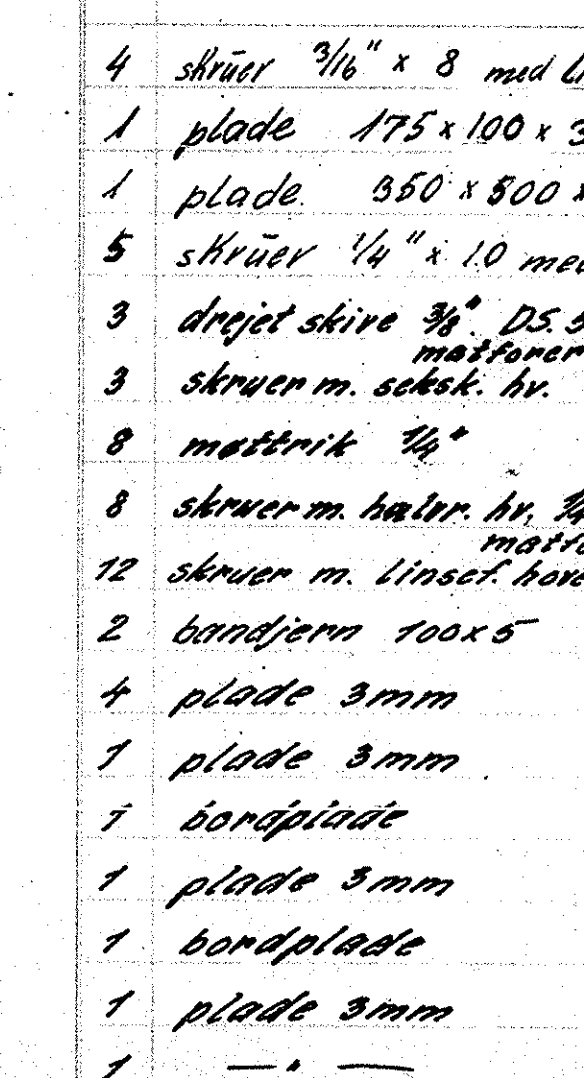 4 skrūer 3/16" x 8 med
1 plade 175 x 100 x 3
1 plade. 350 x 500 x
5 skrūer 1/4" x 10 med
3 drejet skive 3/8". DS.
matforer
3 skruer m. seksk. hv.
8 møttrik 1/4"
8 skruer m. halvr. hv.
12 skruer m. linsef. hove
2 bandjern 100x5
4 plade 3mm
1 plade 3mm
1 bordplade
1 plade 3mm
1 bordplade
1 plade 3mm
1 — " —